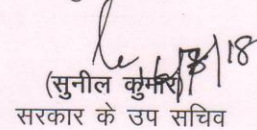 18
(सुनील कुमार)
सरकार के उप सचिव